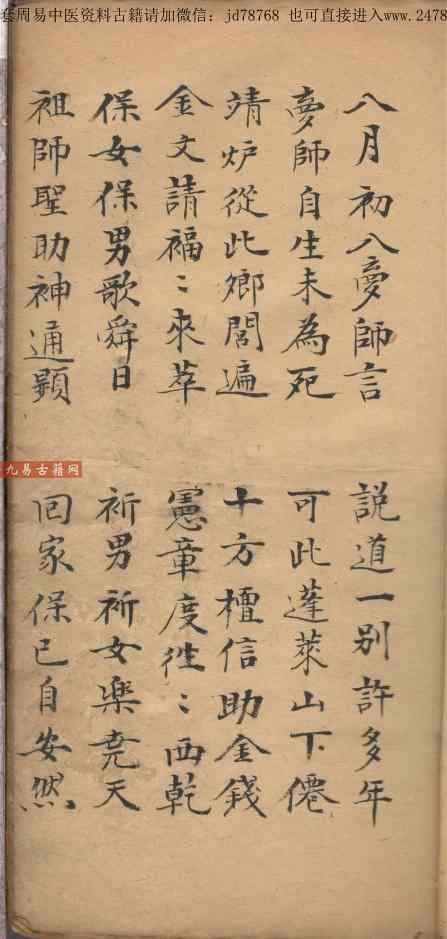 套周易中医资料古籍请加微信：jd78768 也可直接进入www.2478
八月初八夢師言 説道一别許多年
夢師自生未為死 可此蓬萊山下僊
靖炉從此鄉閭遍 十方檀信助金錢
金文請福〻來萃 憲章度徃〻西乾
保女保男歌舜日 祈男祈女楽尭天
祖師聖助神通顕 回家保已自安然
九易古籍网